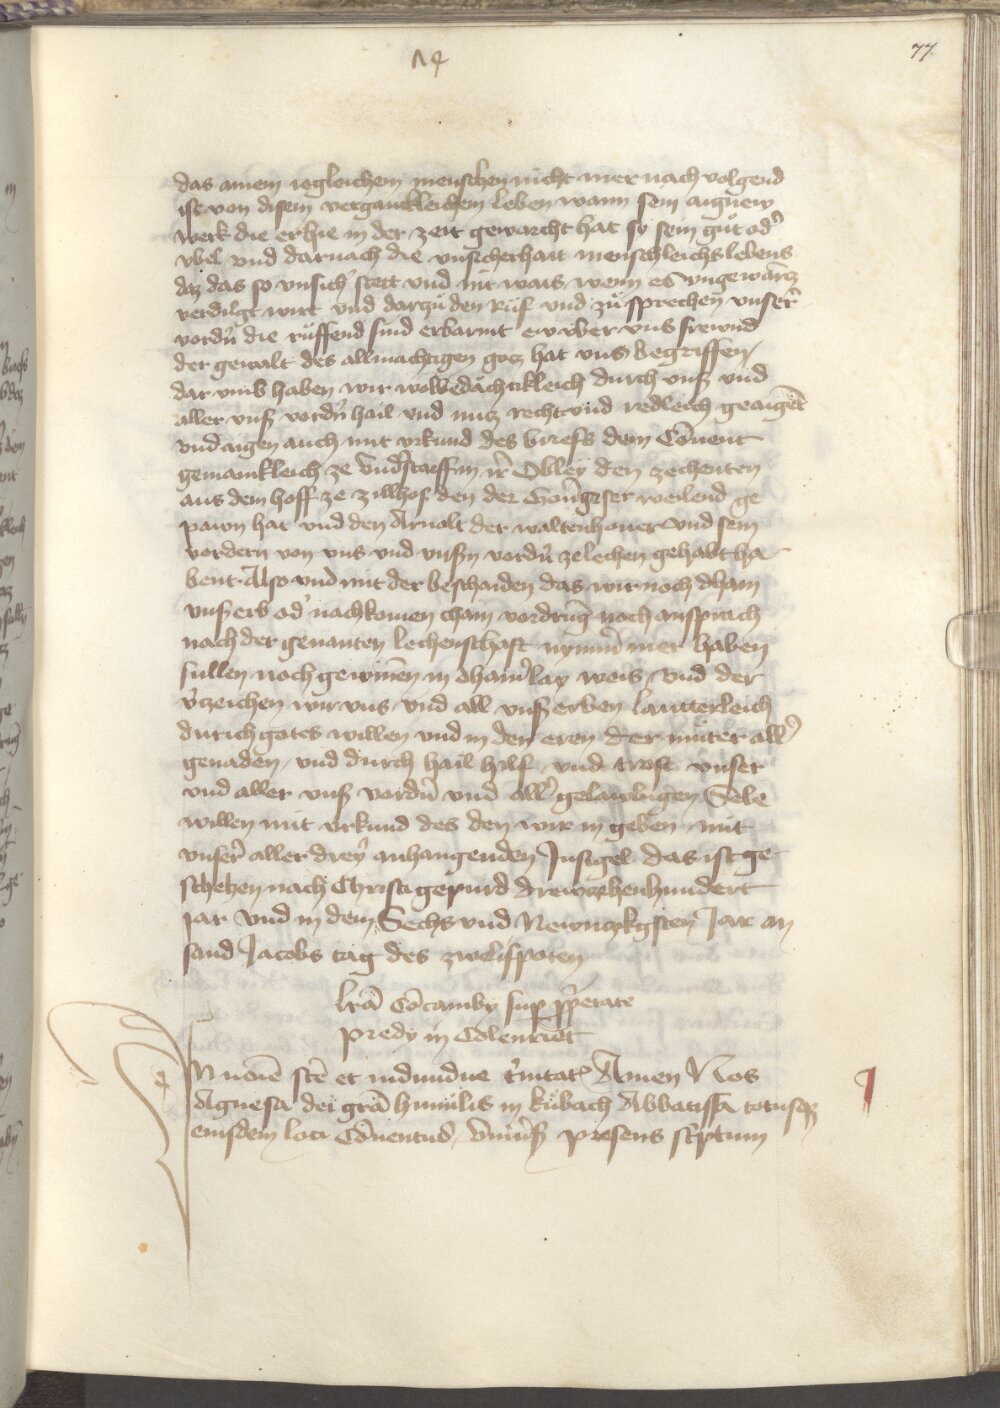 77
das ainem iegleichem menschen nicht mer nach volgend
ist von disem vergankleichem leben wann sein aignew
werk die er hie in der zeit geworcht hat so sein gut od'
vbel vnd darnach die vnsicherhait menschleichs lebens
daz das so vnsich' stett vnd nit wais wenn es vngewarncz
verdilgt wirt vnd darzu den Ruf vnd zu sprechen vnser'
vordn' die ruffend sind erbarmt ew vber vns frewnd
der gewalt des allmachtigen gotz hat vns begriffen
dar vmb haben wir wolbedachtikleich durch vnß vnd
aller vnß vordn' hail vnd nutz recht vnd redleich geaigēt
vnd aigen auch mit vrkund des briefs dem Cōuent
gemainkleich ze vnd'staiff in ir' Obley den zechenten
aus dem hoff ze zillhof den der weilend ge
pawn hat vnd den Arnolt der waltenhouer vnd sein
vordern von vns vnd vnßn vordn' ze lechen gehabt ha
bent Also vnd mit der beschaiden das wir noch dhain
vnß erb od' nachkomen chain vordrūg noch ansprach
nach der genanten lechenschaft nymm' mer haben
sullen noch gewinnen in dhain'lay weis vnd der
v'zeichen wir vns vnd all vnß erben lautterleich
durich gotes willen vnd in den eren der muter all'
genaden vnd durch hail hilf vnd trost vnser
vnd aller vnß vordn' vnd all' gelaubigen Sele
willen mit vrkund des den wir in geben mit
vnser' aller drey' anhangenden Insigel das ist ge
schehen nach Christi gepurd drewzehenhundert
iar vnd in dem Sechs vnd Newnczkgsten Jar an
sand Jacobs tag des zwelfpoten
lrā Cōcambÿ sup
predÿ in
In noīe scē et indiuidue t'initat' Amen Nos
Agnesa dei grā humilis in kübach Abbatissa totusq3
eiusdem loci Cōuentus presens sc'ptum